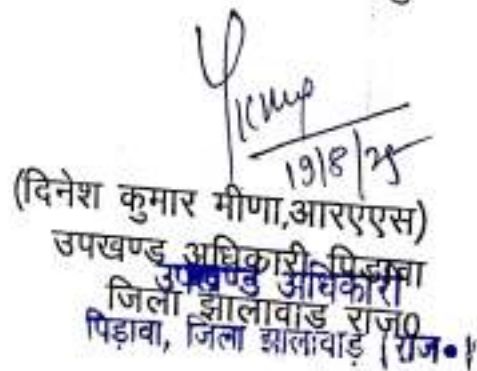 19/8/25
(दिनेश कुमार मीणा,आरएएस)
उपखण्ड अधिकारी पिड़ावा
उपखण्ड अधिकारी
जिला झालावाड राज0
पिड़ावा, जिला झालावाड़ (राज•)